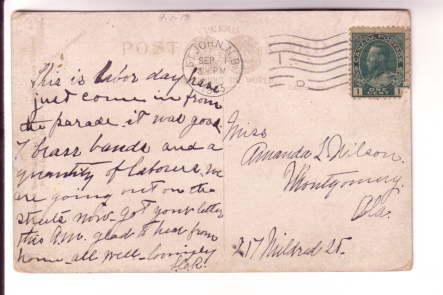 POST
ST. JOHN, N.B.
SEP 1
PM
This is labor day here
just come in from
the parade. it was good.
7 brass bands and a
quantity of laborers, we
are going out on the
streets now. got your letter
this A.M. glad to hear from
home. all well. lovingly
Miss
Amanda L Wilson.
Montgomery.
Ala.
217 Mildred St.
1
1